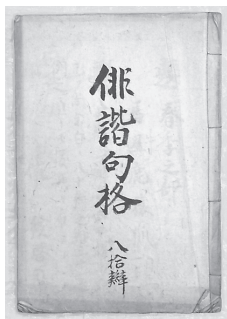 俳諧句格
八拾辨